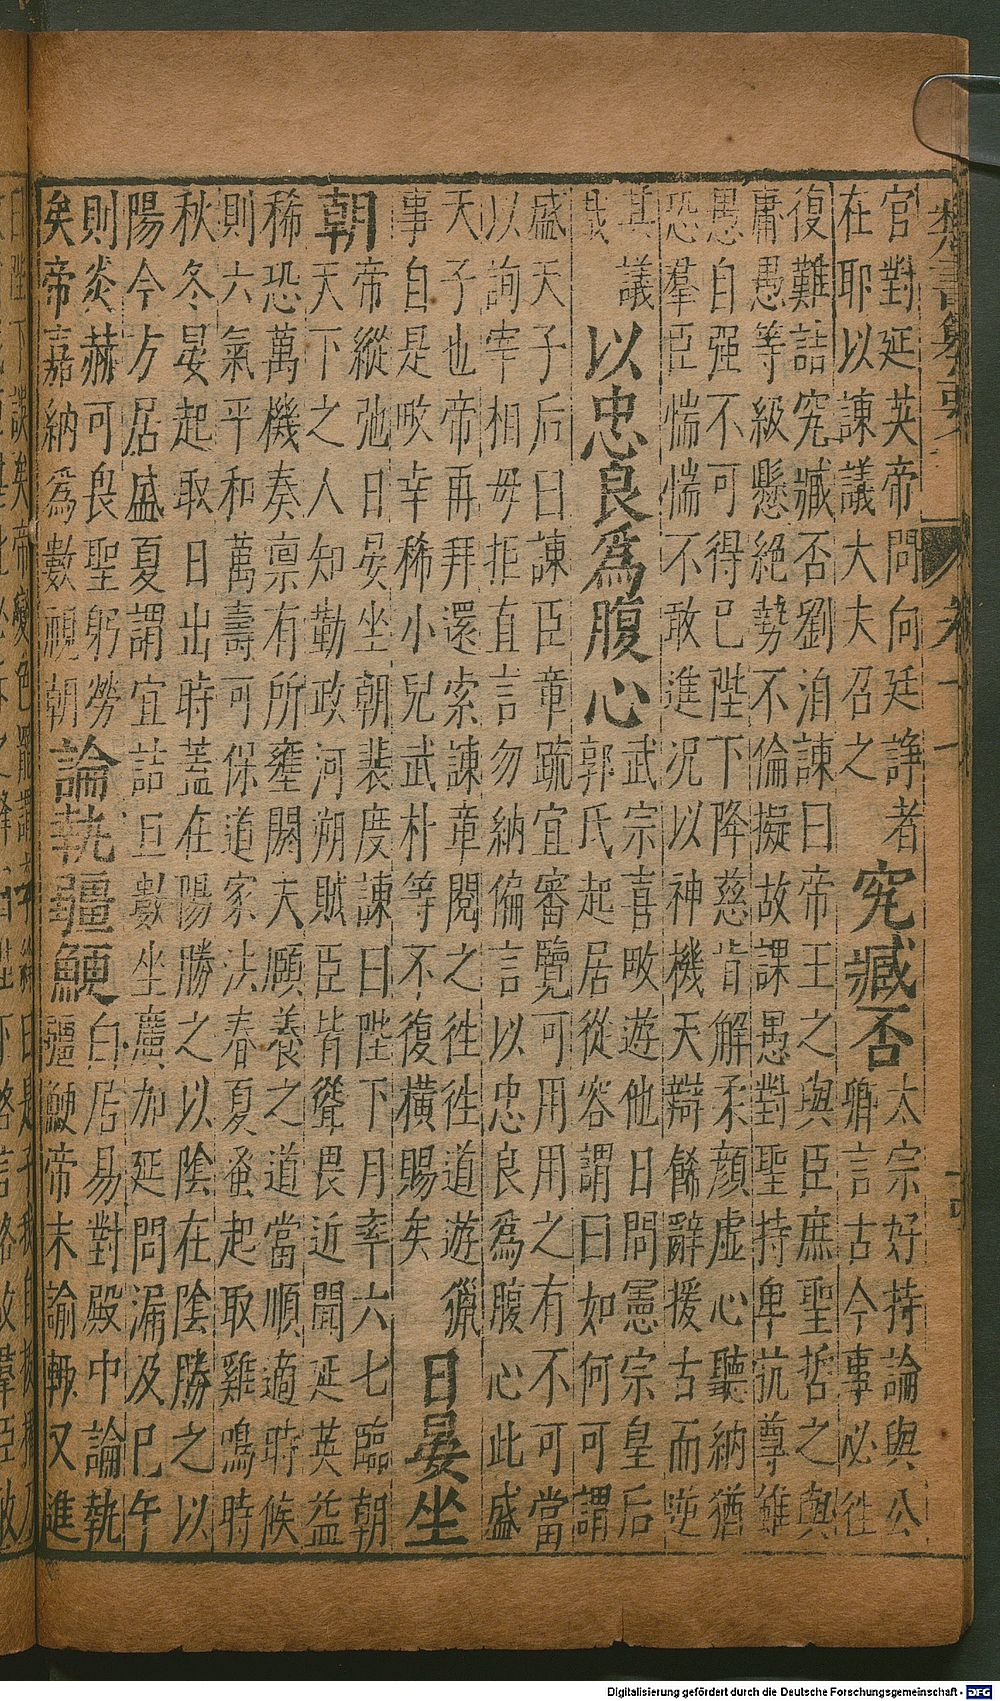 官對延英帝問向廷諍者
在耶以諫議大夫召之
究臧否
太宗好持論與公
卿言古今事必徃
復難詰究臧否劉洎諫曰帝王之與臣庶聖哲之與
庸愚等級懸絕勢不倫擬故課愚對聖持卑抗尊雖
愚自强不可得已陛下降慈旨解柔顏虛心聽納猶
恐羣臣惴惴不敢進况以神機天辯餙辭援古而逆
其議
哉
以忠良爲腹心
武宗喜畋遊他日問憲宗皇后
郭氏起居從容謂曰如何可謂
盛天子后曰諫臣章䟽宜審覽可用用之有不可當
以詢宰相毋拒直言勿納偏言以忠良爲腹心此盛
天子也帝再拜還索諫章閱之徃徃道遊獵
事自是畋幸稀小兒武朴等不復橫賜矣
日晏坐
朝
帝縱弛日晏坐朝裴度諫曰陛下月率六七臨朝
天下之人知勤政河朔賊臣皆聳畏近聞延英益
稀恐萬機奏禀有所壅閼夫頤養之道當順適時候
則六氣平和萬壽可保道家法春夏蚤起取雞鳴時
秋冬晏起取日出時蓋在陽勝之以陰在陰勝之以
陽今方居盛夏謂宜詰旦數坐廣加延問漏及巳午
則炎赫可畏聖躬勞
矣帝嘉納爲數視朝
論執彊鯁
白居易對殿中論執
彊鯁帝未諭輒又進
Digitalisierung gefördert durch die Deutsche Forschungsgemeinschaft - DFG